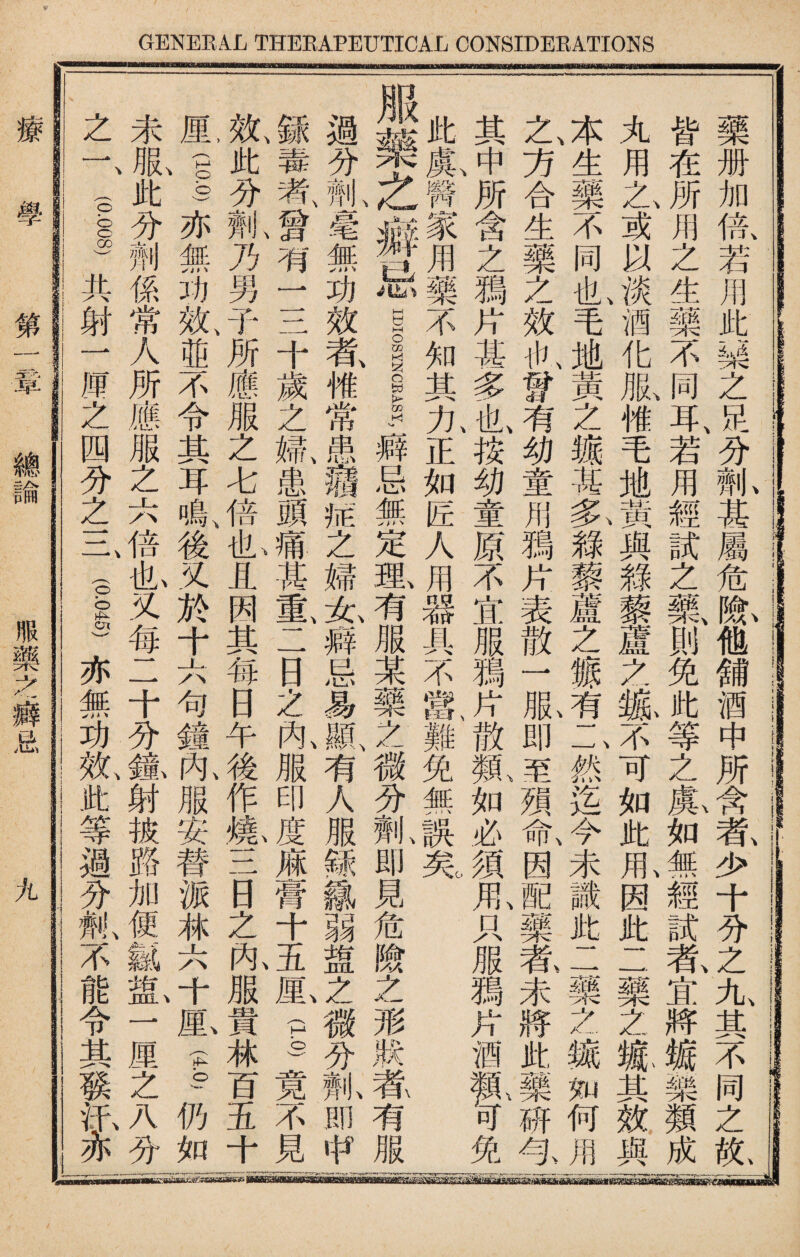 GENERAL THERAPEUTICAL CONSIDERATIONS
藥册加倍、若用此藥之足分劑、甚屬危險、他舖酒中所含者、少十分之九、其不同之故、
皆在所用之生藥不同耳、若用經試之藥、則免此等之虞、如無經試者、宜將𧆐藥類成
丸用之、或以淡酒化服、惟毛地黃與綠藜蘆之𧆐、不可如此用、因此二藥之𧆐、其效與
本生藥不同也、毛地黃之𧆐甚多、綠藜蘆之𧆐有二、然迄今未識此二藥之𧆐如何用
之、方合生藥之效也、曾有幼童用鴉片表散一服、即至殞命、因配藥者、未將此藥研勻、
其中所含之鴉片甚多也、按幼童原不宜服鴉片散類、如必須用、只服鴉片酒類、可免
此虞、醫家用藥不知其力、正如匠人用器具不當、難免無誤矣。
服藥之癖忌 IDIOSYNCRASY, 癖忌無定理、有服某藥之微分劑、即見危險之形狀者、有服
過分劑、毫無功效者、惟常患癪症之婦女、癖忌易顯、有人服銾綠弱塩之微分劑、即中
銾毒者、曾有一三十歲之婦、患頭痛甚重、二日之內、服印度麻膏十五厘、(1.0) 竟不見
效、此分劑、乃男子所應服之七倍也、且因其每日午後作燒、三日之內、服貴林百五十
厘、(10.0) 亦無功效、並不令其耳鳴、後又於十六句鐘內、服安替派林六十厘、(4.0) 仍如
未服、此分劑係常人所應服之六倍也、又每二十分鐘、射披路加便綠塩、一厘之八分
之一、(0.008) 共射一厘之四分之三、(0.045) 亦無功效、此等過分劑、不能令其發汗、亦
療學 第一章 總論 服藥之癖忌 九